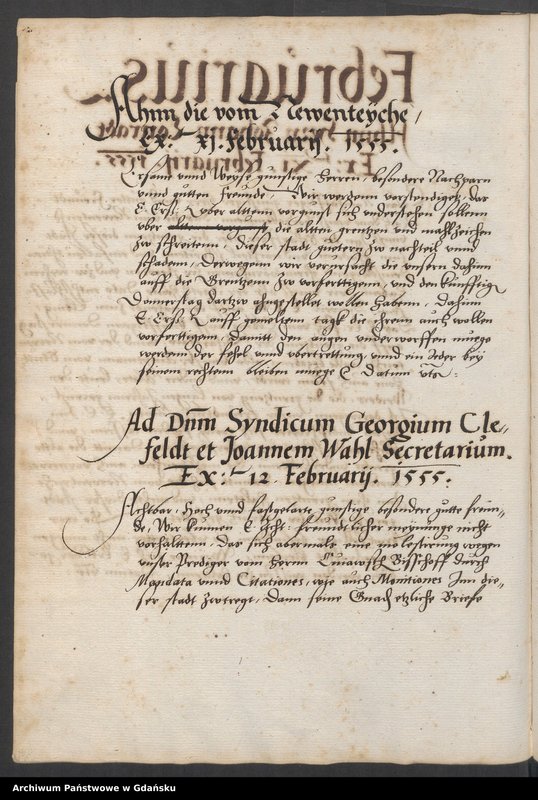 Ahnn die vom Newenteyche,
Ex: XI. Februarij. 1555.
Ersame unnd Weyse gunstige Herren, besondere Nachparn
unnd gutten freunde, Wir werdenn verstendiget, das
E. Ersз. uber alttenn vorgunst sich understehen sollenn
uber die altten grentzen und mahlzeichen
zw schreitenn, dieser stadt guetern zw nachteil unnd
schadenn, Derwegenn wir verursacht die unsern dahinn
auff die Grentzenn zw vorferttigenn, und den kunfftig
Donnerstag dartzw ahngestellet wollen habenn, dahinn
E. Ers. auff gemeltenn tagk die ihrenn auch wollen
vorferttigenn, damitt den augen underworffen muege
werdenn der fehel unnd ubertrettung, unnd ein Jeder bey
seinem rechtenn bleiben muege Datum uts:
Ad Dnm Syndicum Georgium Cle-
feldt et Joannem Wahl Secretarium.
Ex: 12. Februarij. 1555.
Achtbar, Hoch unnd fastgelarte gunstige besondere gutte freun-
de, Wir kunnen E. Acht: freundtlicher meynunge nicht
vorhalttenn, das sich abermals eine molestirung wegen
unser Prediger vom herrn Cuiawsch Bisschoff durch
Mandata unnd Citationes, wie auch Monitiones Inn die-
ser stadt zwtregt, Dann seine Gnad etzliche Briefe
Archiwum Państwowe w Gdańsku